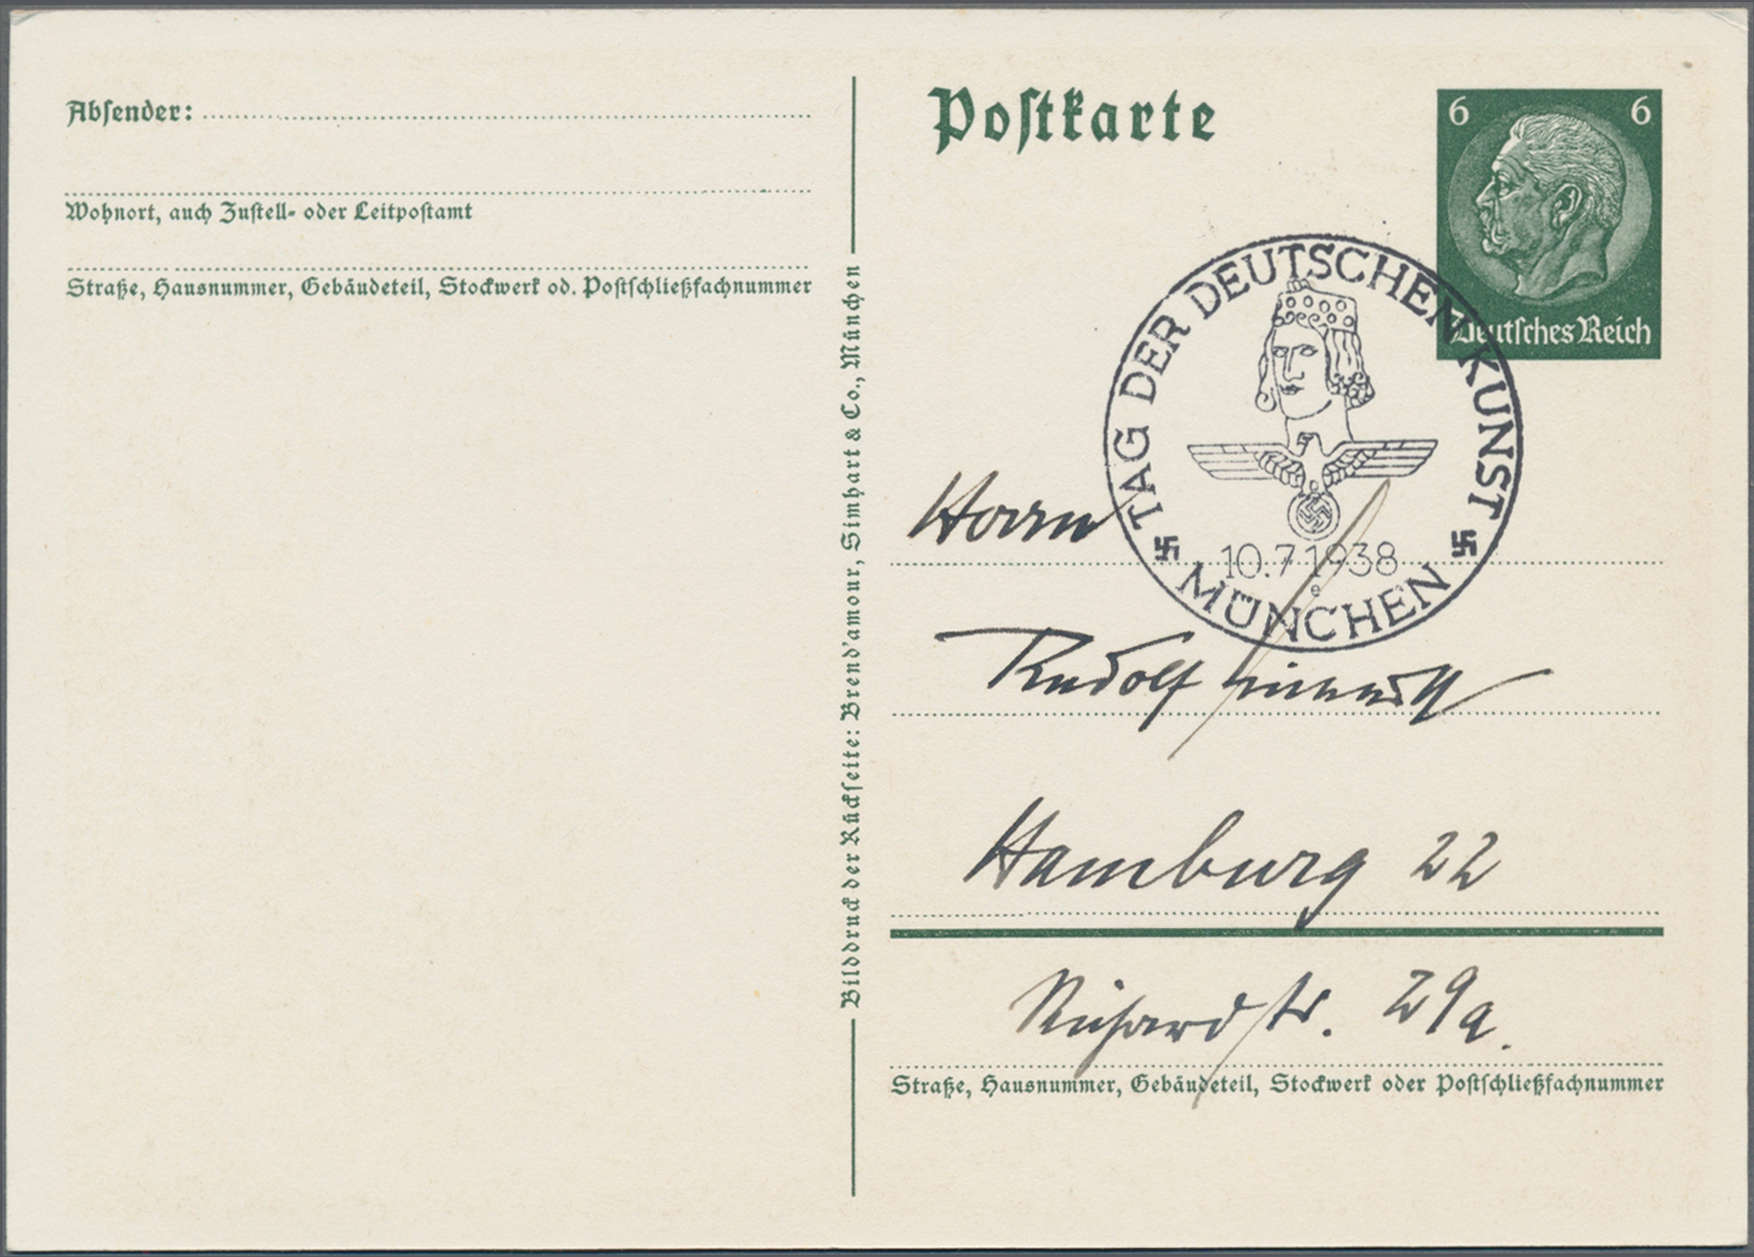 Absender:
Wohnort, auch Zustell- oder Leitpostamt
Straße, Hausnummer, Gebäudeteil, Stockwerk od. Postschließfachnummer
Bilddruck der Rückseite: Brend'amour, Simhart & Co., München
Postkarte
6 6
Deutsches Reich
TAG DER DEUTSCHEN KUNST
10.7.1938
e
MÜNCHEN
Herrn
Rudolf
Hamburg 22
Richardstr. 29a.
Straße, Hausnummer, Gebäudeteil, Stockwerk oder Postschließfachnummer